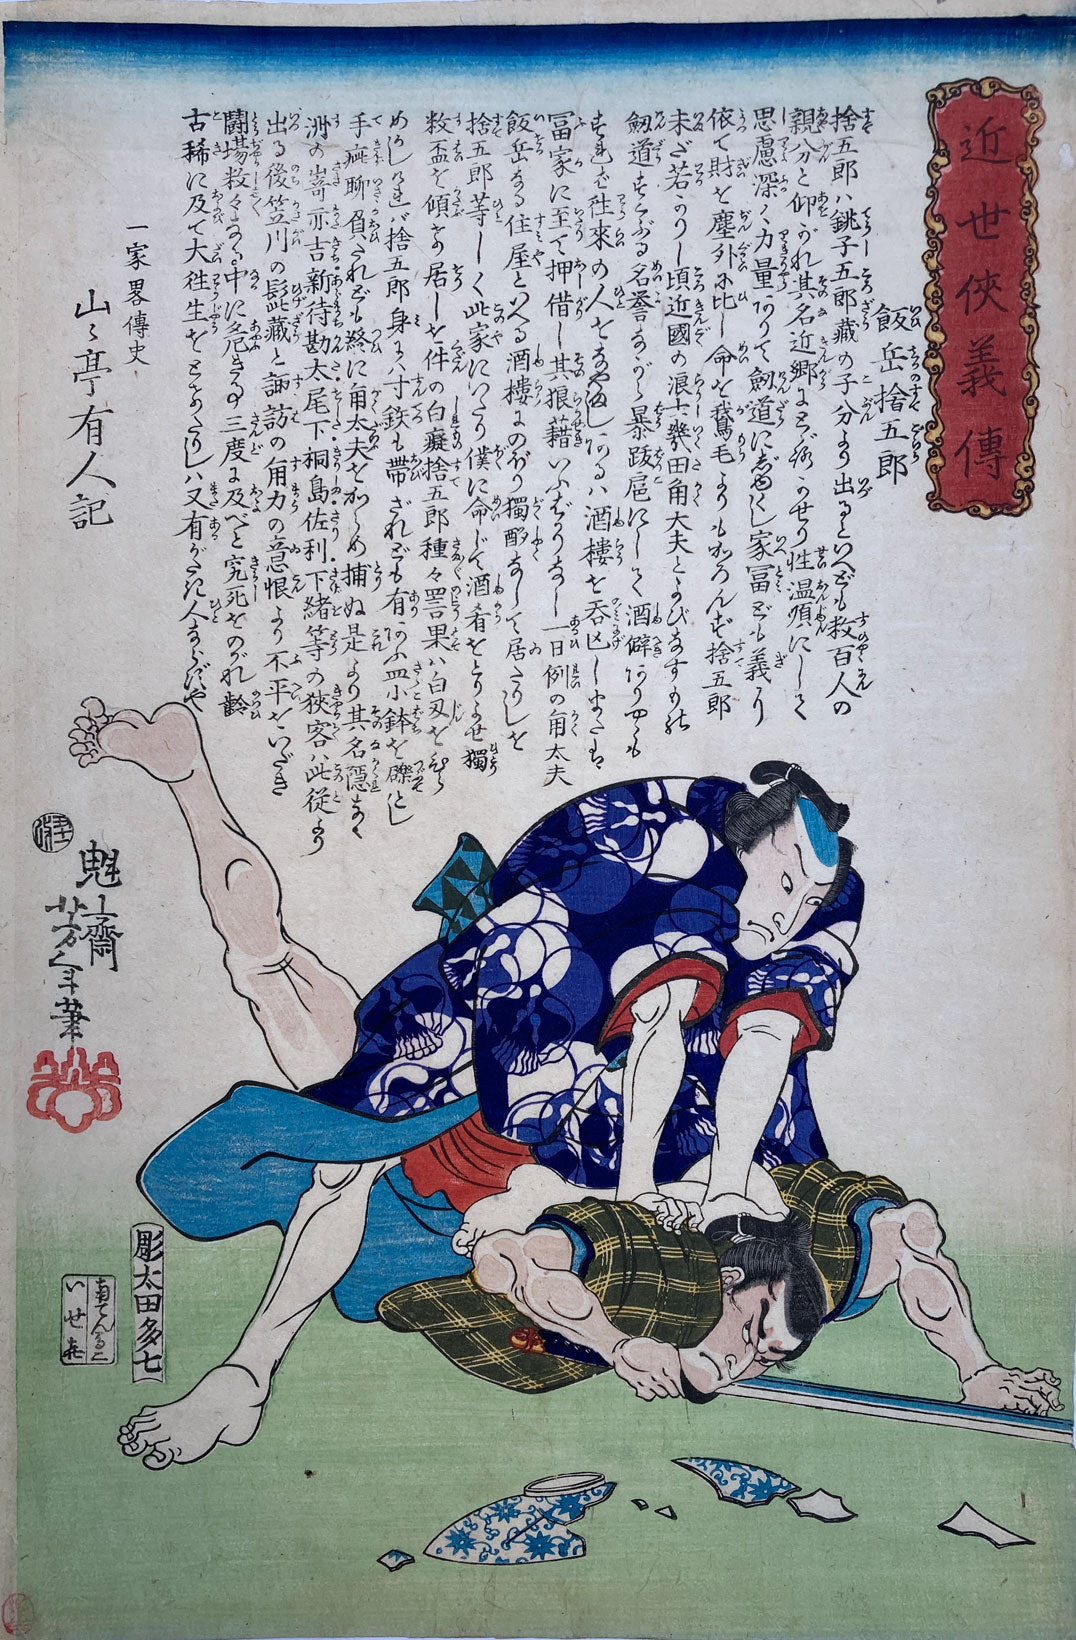 近世俠義傳
飯岳捨五郎
捨五郎ハ銚子五郎藏の子分より出るといへども数百人の
親分と仰がれ其名近郷に
思慮深く力量ありて劔道に
依て財を塵外に比し命を鵞毛よりもかろんず捨五郎
未だ若かりし頃近國の浪士幾田角太夫とよびなすもの
劔道すぐるゝ名譽ながら暴跋扈にして酒僻ありやゝも
すれば徃來の人をなやまし
冨家に至て押借し其狼藉いふばかりなし一日例の角太夫
飯岳なる住屋といへる酒樓にのぼり獨酌なして居たりしを
捨五郎等しく此家にいたり僕に命じて酒肴をとりよせ獨
数盃を傾けて居しを件の白癡捨五郎種々詈果ハ白刄を
ハ捨五郎身に八寸鉄も帯ざれども有あふ皿小鉢を礫とし
手疵聊負たれども終に角太夫をからめ捕ぬ是より其名隠なく
洲の嵜亦吉新待勘太尾下桐島佐利下緒等の狹客ハ此従より
出る後笠川の髭藏と諏訪の角力の意恨より不平をいだき
鬪塲数々なる中に危き事三度に及べど究死をのがれ齡
古稀に及て大徃生をとなたりしハ又有がたき人ならずや
一家畧傳史
山々亭有人記
魁齋芳年筆
彫太田多七
いせ㐂